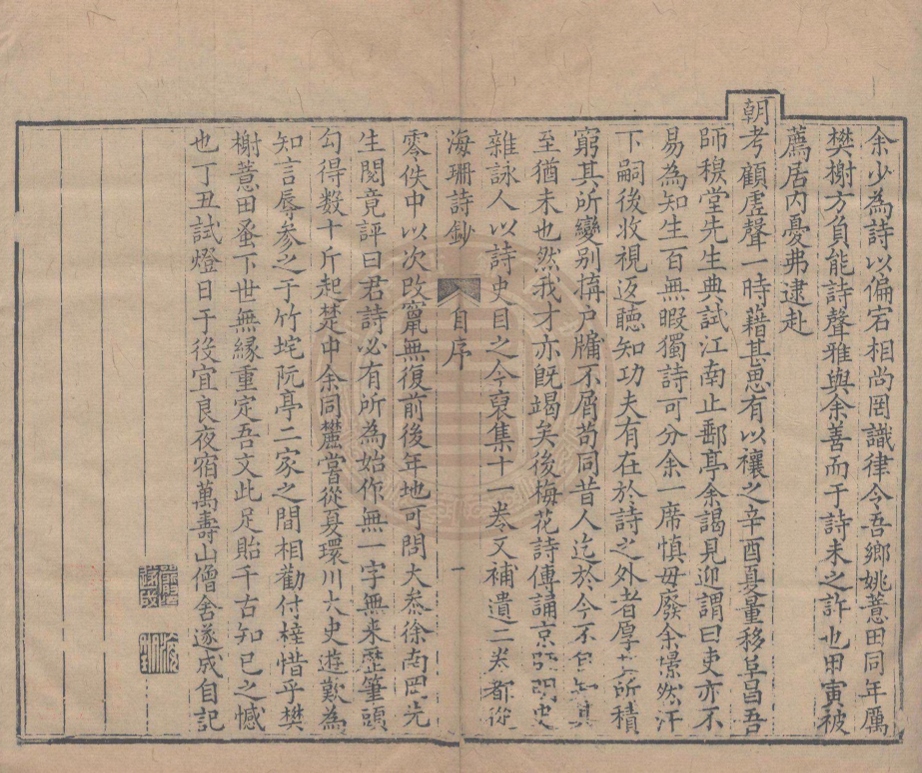 余少為詩以偏宕相尚罔識律令吾鄉姚薏田同年厲
樊榭方負能詩聲雅與余善而于詩未之許也甲寅被
薦居内憂弗逮赴
朝考顧虛聲一時藉甚思有以禳之辛酉夏量移阜昌吾
師稷堂先生典試江南止鄣亭余謁見迎謂曰吏亦不
易為知生百無暇獨詩可分余一席慎毋廢余憬然汗
下嗣後收視返聽知功夫有在於詩之外者厚其所積
窮其所變别擠户牖不屑苟同昔人迄於今不自知其
至猶未也然我才亦既竭矣後梅花詩傳誦京師明史
雜詠人以詩史目之今裒集十一卷又補遺二卷都從
海珊詩鈔 自序 一
零佚中以次改竄無復前後年地可問大叅徐南岡先
生閱竟評曰君詩必有所為始作無一字無来歴筆頭
勾得数十斤起楚中余同麓嘗從夏環川太史遊歎為
知言辱參之于竹垞阮亭二家之間相勸付梓惜乎樊
榭薏田蚤下世無緣重定吾文此足貽千古知己之憾
也丁丑試燈日于後宜良夜宿萬壽山僧舍遂成自記